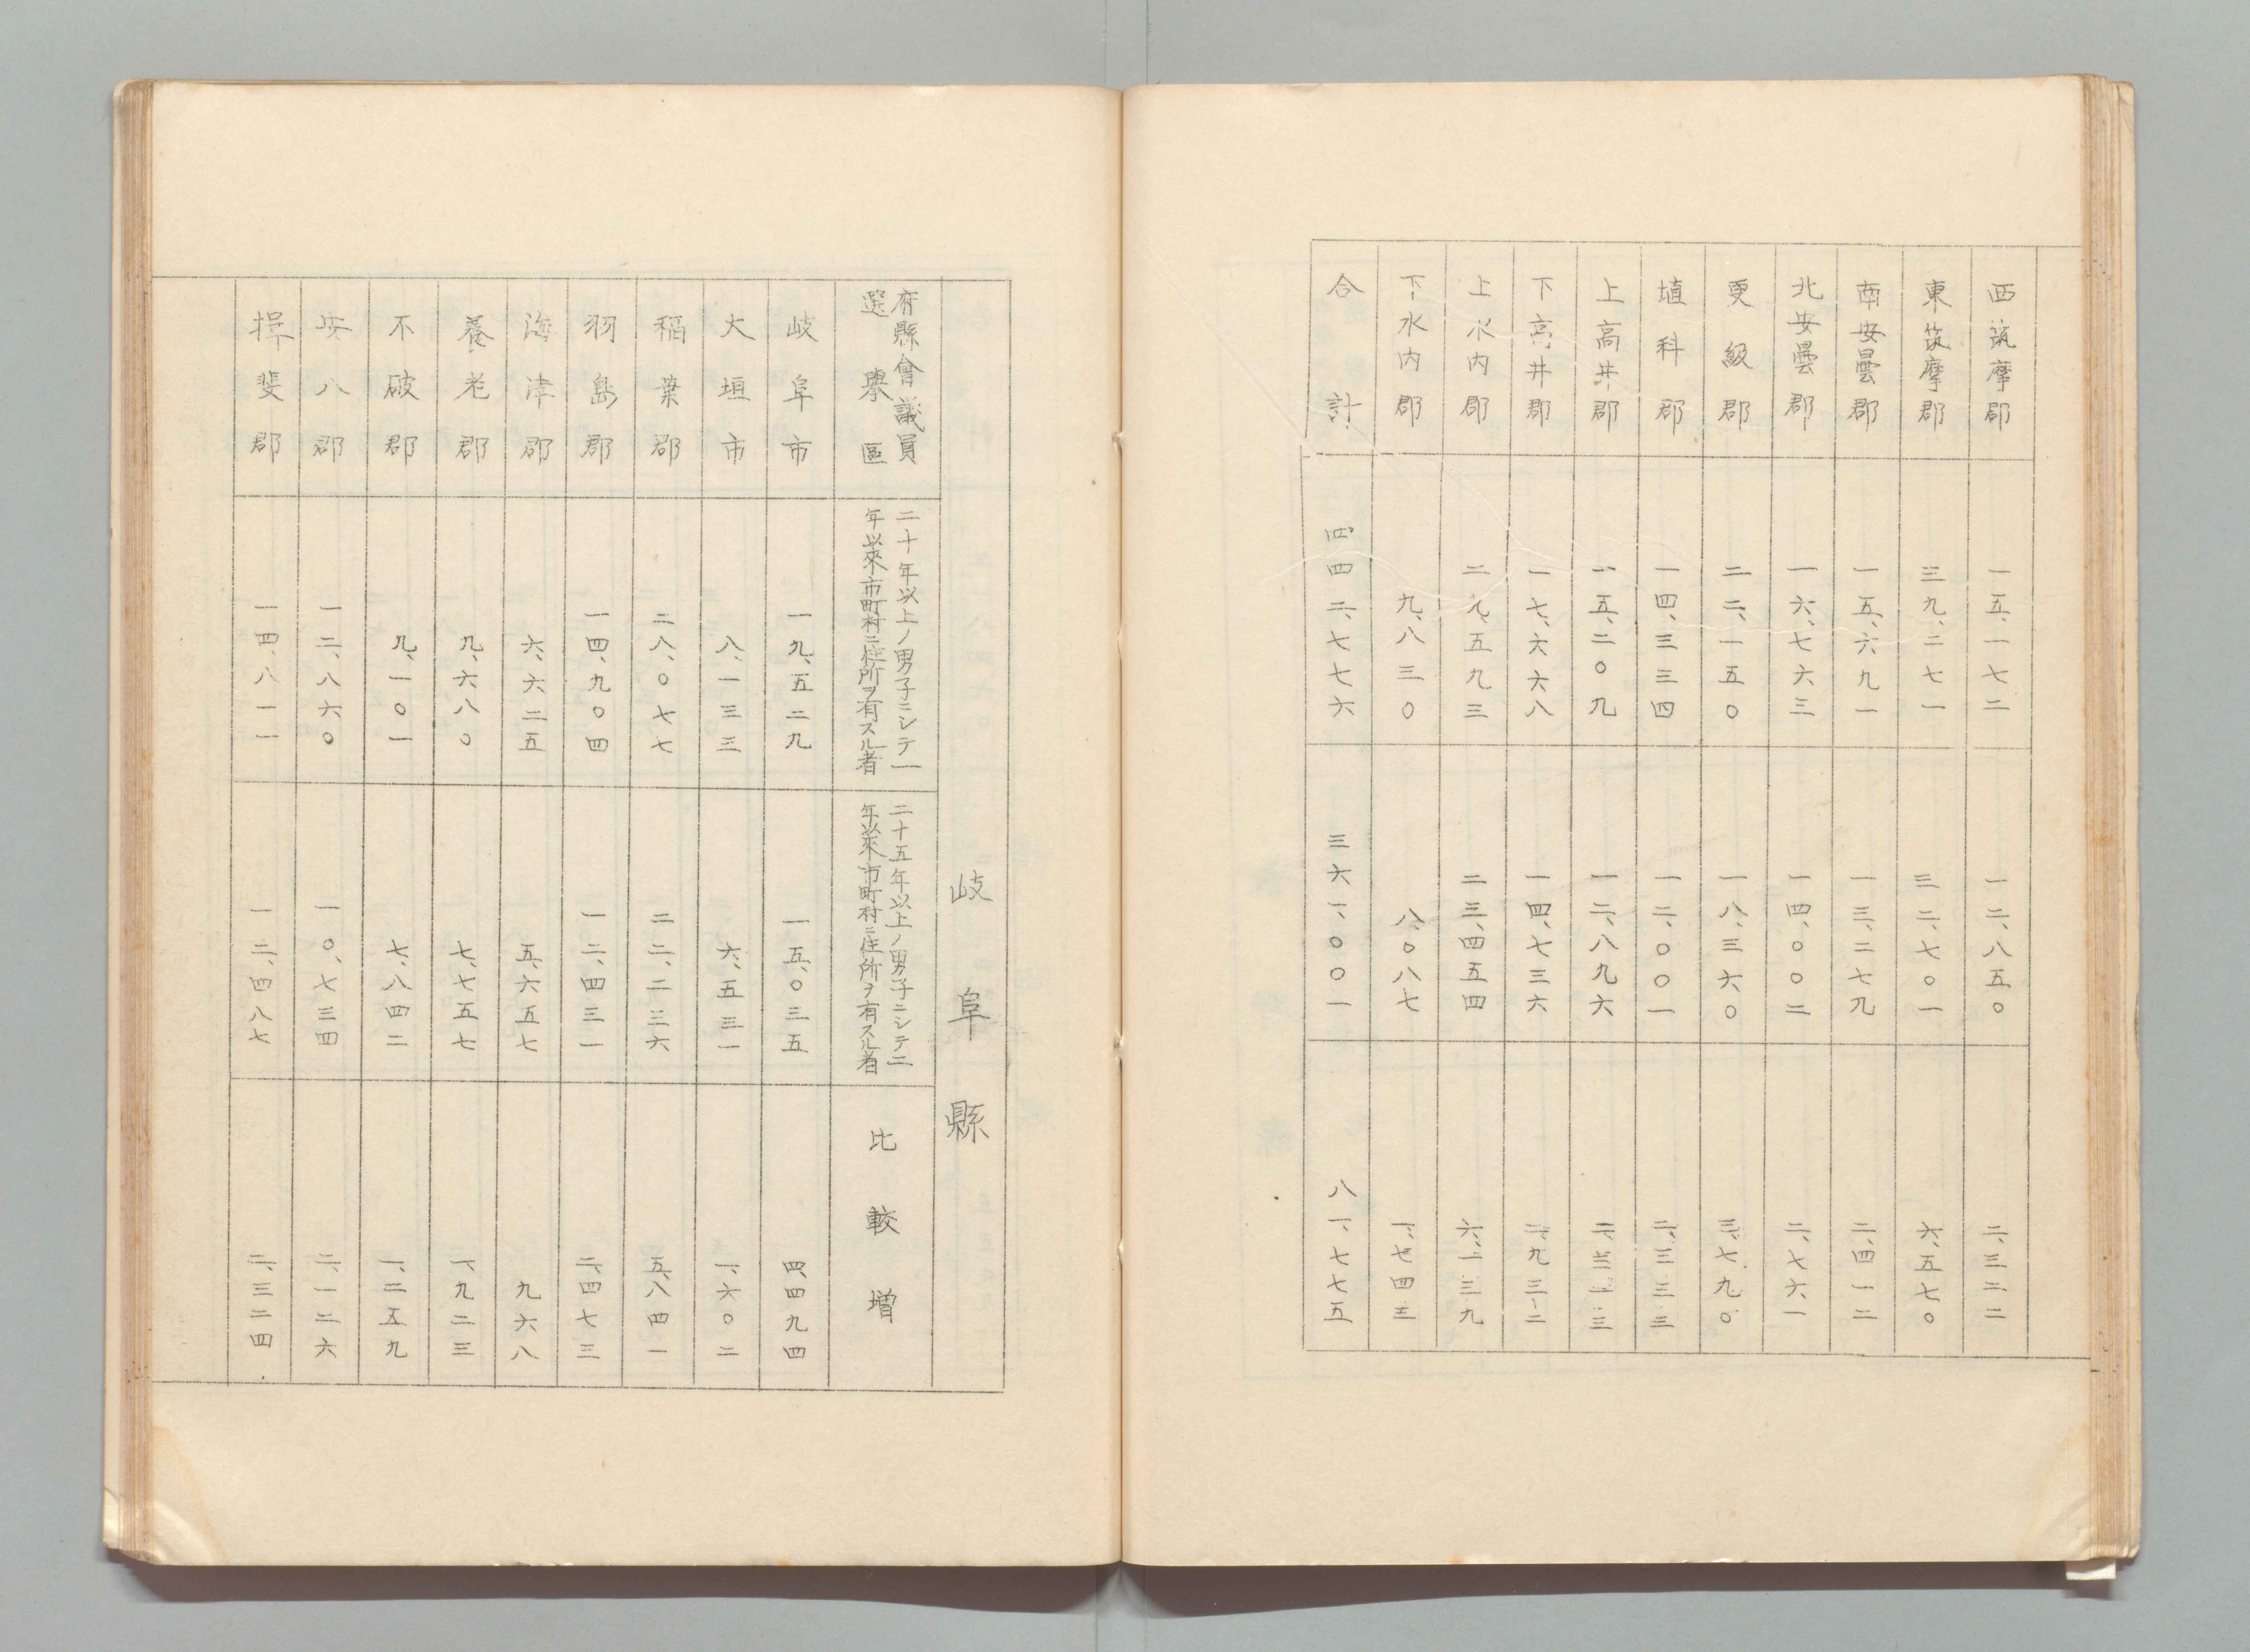 西筑摩郡 一五、一七二 一二、八五〇 二、三二二
東筑摩郡 三九、二七一 三二、七〇一 六、五七〇
南安曇郡 一五、六九一 一三、二七九 二、四一二
北安曇郡 一六、七六三 一四、〇〇二 二、七六一
更級郡 二二、一五〇 一八、三六〇 三、七九〇
埴科郡 一四、三三四 一二、〇〇一 二、三三三
上高井郡 一五、二〇九 一二、八九六 二、三一三
下高井郡 一七、六六八 一四、七三六 二、九三二
上水内郡 二九、五九三 二三、四五四 六、一三九
下水内郡 九、八三〇 八、〇八七 一、七四三
合計 四四二、七七六 三六一、〇〇一 八一、七七五
岐阜縣
府縣會議員
選擧區
二十年以上ノ男子ニシテ一
年以來市町村ニ住所ヲ有スル者
二十五年以上ノ男子ニシテ二
年以來市町村ニ住所ヲ有スル者
比較増
岐阜市 一九、五二九 一五、〇三五 四、四九四
大垣市 八、一三三 六、五三一 一、六〇二
稲葉郡 二八、〇七七 二二、二三六 五、八四一
羽島郡 一四、九〇四 一二、四三一 二、四七三
海津郡 六、六二五 五、六五七 九六八
養老郡 九、六八〇 七、七五七 一、九二三
不破郡 九、一〇一 七、八四二 一、二五九
安八郡 一二、八六〇 一〇、七三四 二、一二六
揖斐郡 一四、八一一 一二、四八七 二、三二四